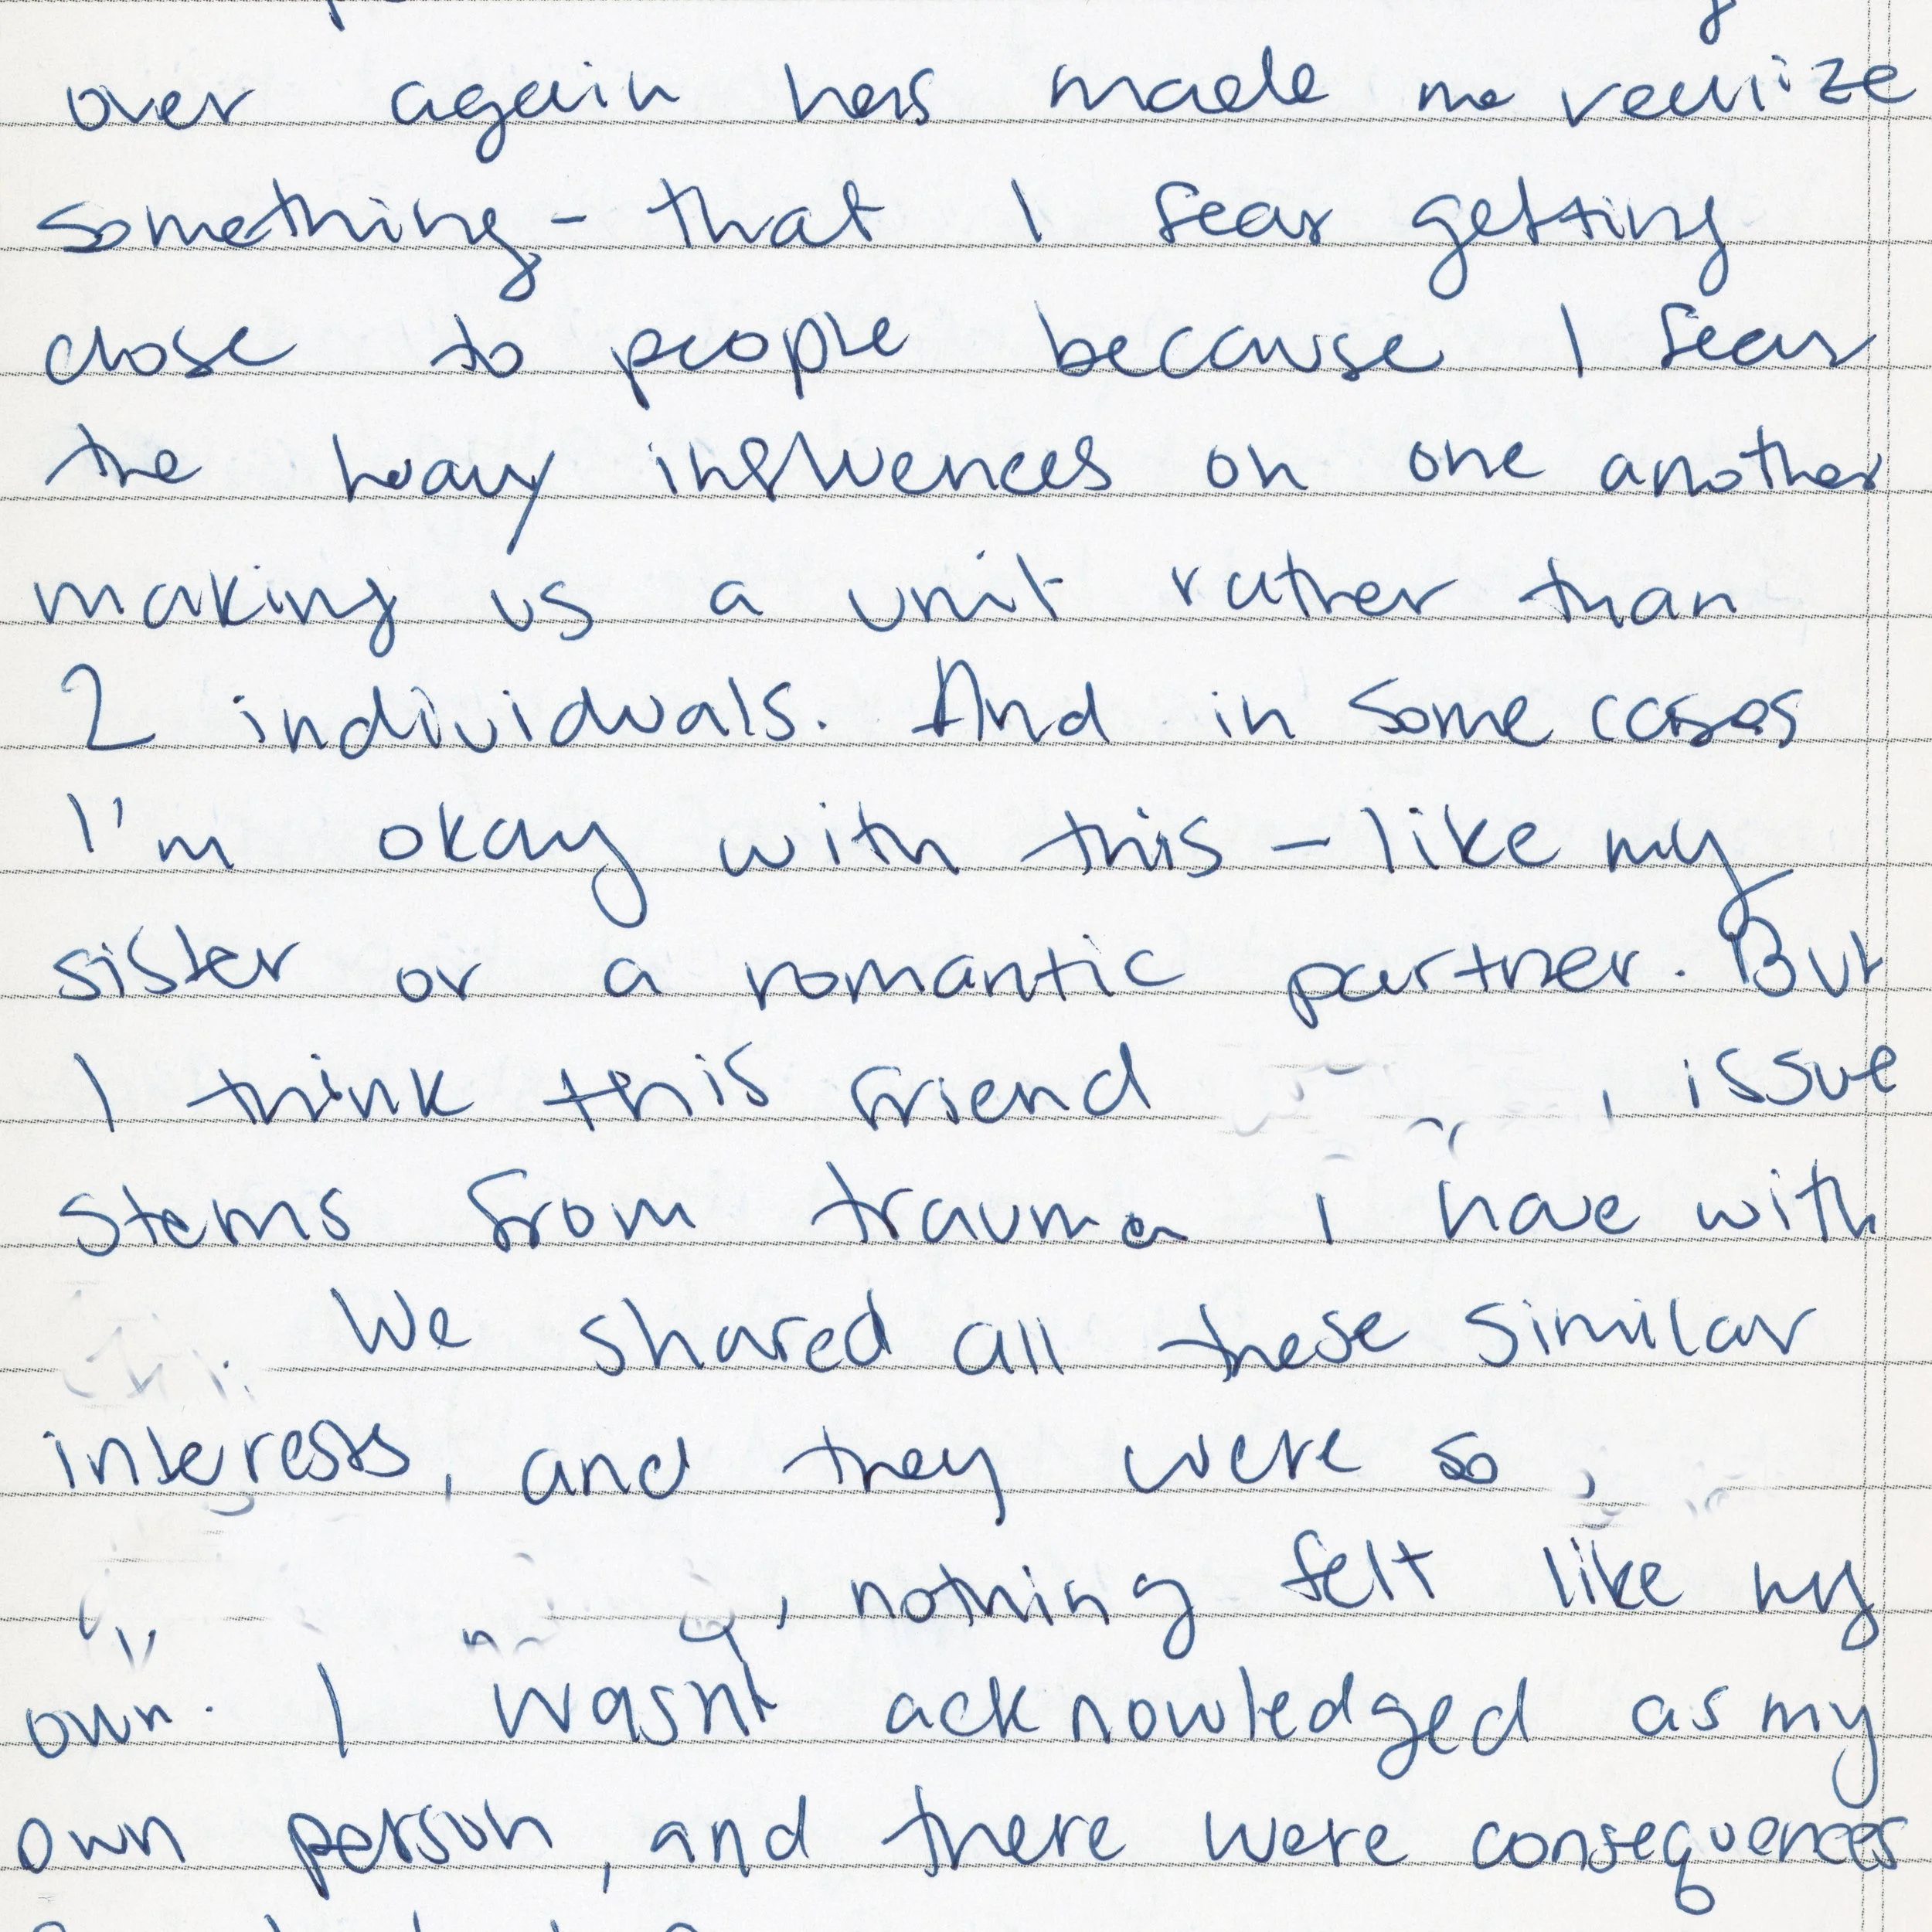 over again has made me realize
something - that I fear getting
close to people because I fear
the heavy influences on one another
making us a unit rather than
2 individuals. And in some cases
I'm okay with this - like my
sister or a romantic partner. But
I think this friend , issue
stems from trauma I have with
. We shared all these similar
interests, and they were so
, nothing felt like my
own. I wasn't acknowledged as my
own person, and there were consequences